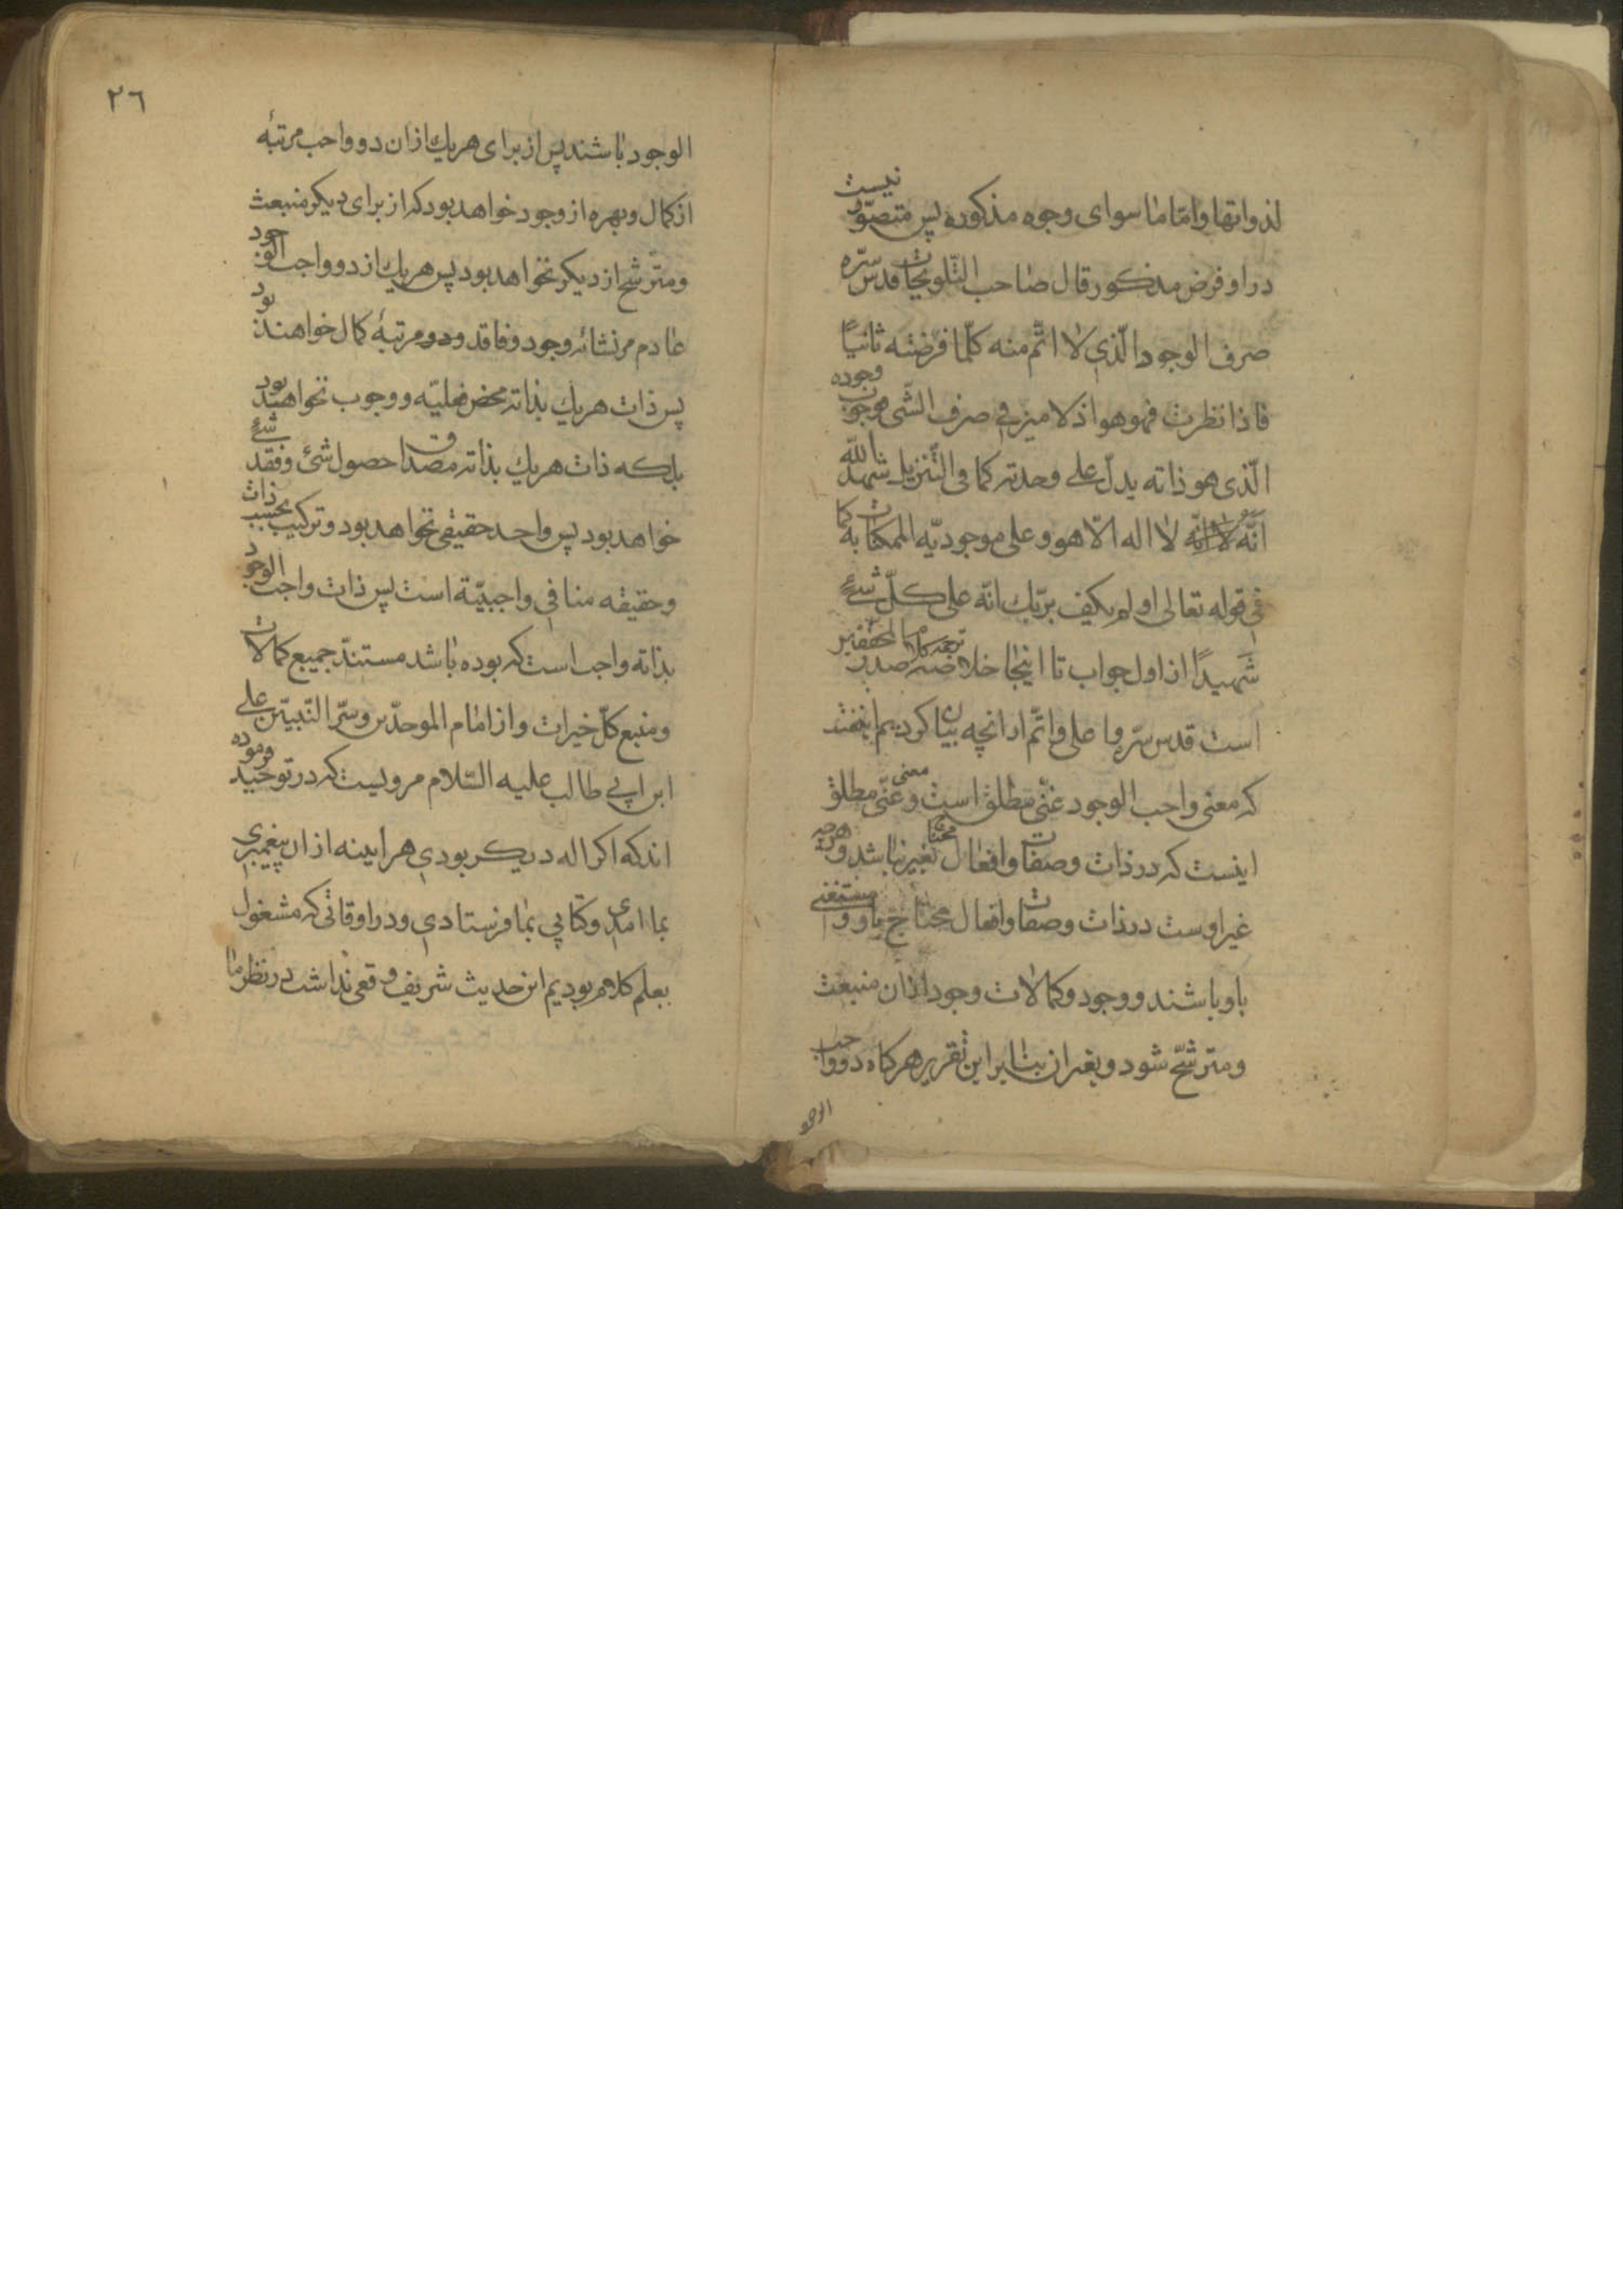 لذواتها وامّا ما سوای وجوه مذکوره پس متصوّر نیست
در او فرض مذکور قال صاحب التّلویحات قدس سرّه
صرف الوجود الّذی لا اتّم منه کلّما فرضته ثانیًا
فاذا نظرت فهو هو اذ لا میز فی صرف الشّی فوجوب وجوده
الّذی هو ذاته یدلّ علی وحدته کما فی التّنزیل شهد الله
انّه لا اله الّا هو و علی موجودیّه الممکنات به کما
فی قوله تعالی او لم یکف بربّك انّه علی کلّ شیءٍ
شَهیدًا از اول جواب تا اینجا خلاصه ترجمه کلام صدر
است قدس سرّه و اعلی و اتّم از انچه بیان کردیم اینست
که معنی واجب الوجود غنّی مطلق است و معنی غنّی مطلق
اینست که در ذات و صفات و افعال محتاج بغیر نباشد و هرچه
غیر اوست در ذات و صفات و افعال محتاج باو و مستغنی
باو باشند و وجود و کمالات وجود ازان منبعث
و مترشّح شود و بغیر ان بنابر این تقریر هرکاه دو واجب
الوجود
٢٦
الوجود باشند پس از برای هریك ازان دو واجب مرتبهٔ
از کمال و بهره از وجود خواهد بود که از برای دیکر منبعث
و مترّشح از دیکر نخواهد بود پس هریك از دو واجب الوجود
عادم مر نشائه وجود و فاقد و دو مرتبهٔ کمال خواهند بود
پس ذات هریك بذاته محض فعلیّه و وجوب نخواهند بود
بلکه ذات هریك بذاته مصداق حصول شئ و فقد شیءٍ
خواهد بود پس واحد حقیقی نخواهد بود و ترکیب بحسب ذات
و حقیقه منافی واجبیّة است پس ذات واجب الوجود
بذاته واجب است که بوده باشد مستندّ جمیع کمالات
و منبع کلّ خیرات و از امام الموحدّین و سّر النّبییّن علی
ابن ابی طالب علیه السّلام مرویست که در توحید فرموده
اندکه اکر اله دیکر بودی هراینه از ان پیغمبری
بما امدی و کتابی بما فرستادی و در اوقاتی که مشغول
بعلم کلام بودیم این حدیث شریف وقعی نداشت در نظر ما